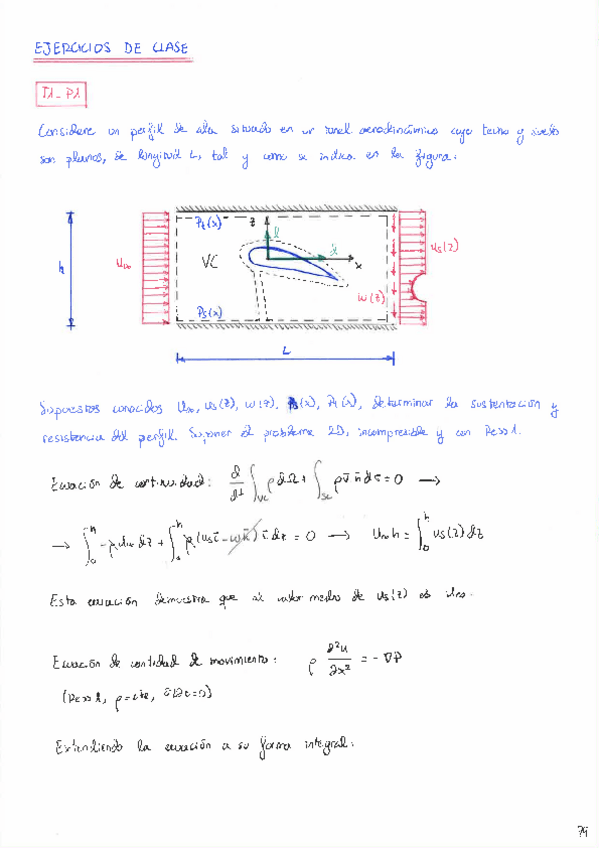 EJERCICIOS DE CLASE
T1_P1
Considere un perfil de ala situado en un túnel aerodinámico cuyo techo y suelo
son planos, de longitud L, tal y como se indica en la figura.
Pt(x)
z
k
U∞
VC
i
x
us(z)
h
w(z)
Ps(x)
L
Supuestos conocidos U∞, us(z), w(z), Ps(x), Pt(x), determinar la sustentación y
resistencia del perfil. Suponer el problema 2D, incompresible y con Re>>1.
Ecuación de continuidad: d/dt ∫VC ρ dΩ + ∫SC ρ v̄ n̄ dσ = 0 →
→ ∫0^h -ρ U∞ dz + ∫0^h ρ (us ī - w k̄) ī dz = 0 → U∞ h = ∫0^h us(z) dz
Esta ecuación demuestra que el valor medio de us(z) es U∞.
Ecuación de cantidad de movimiento: ρ ∂²u/∂x² = -∇P
(Re>>1, ρ=cte,
Extendiendo la ecuación a su forma integral:
79